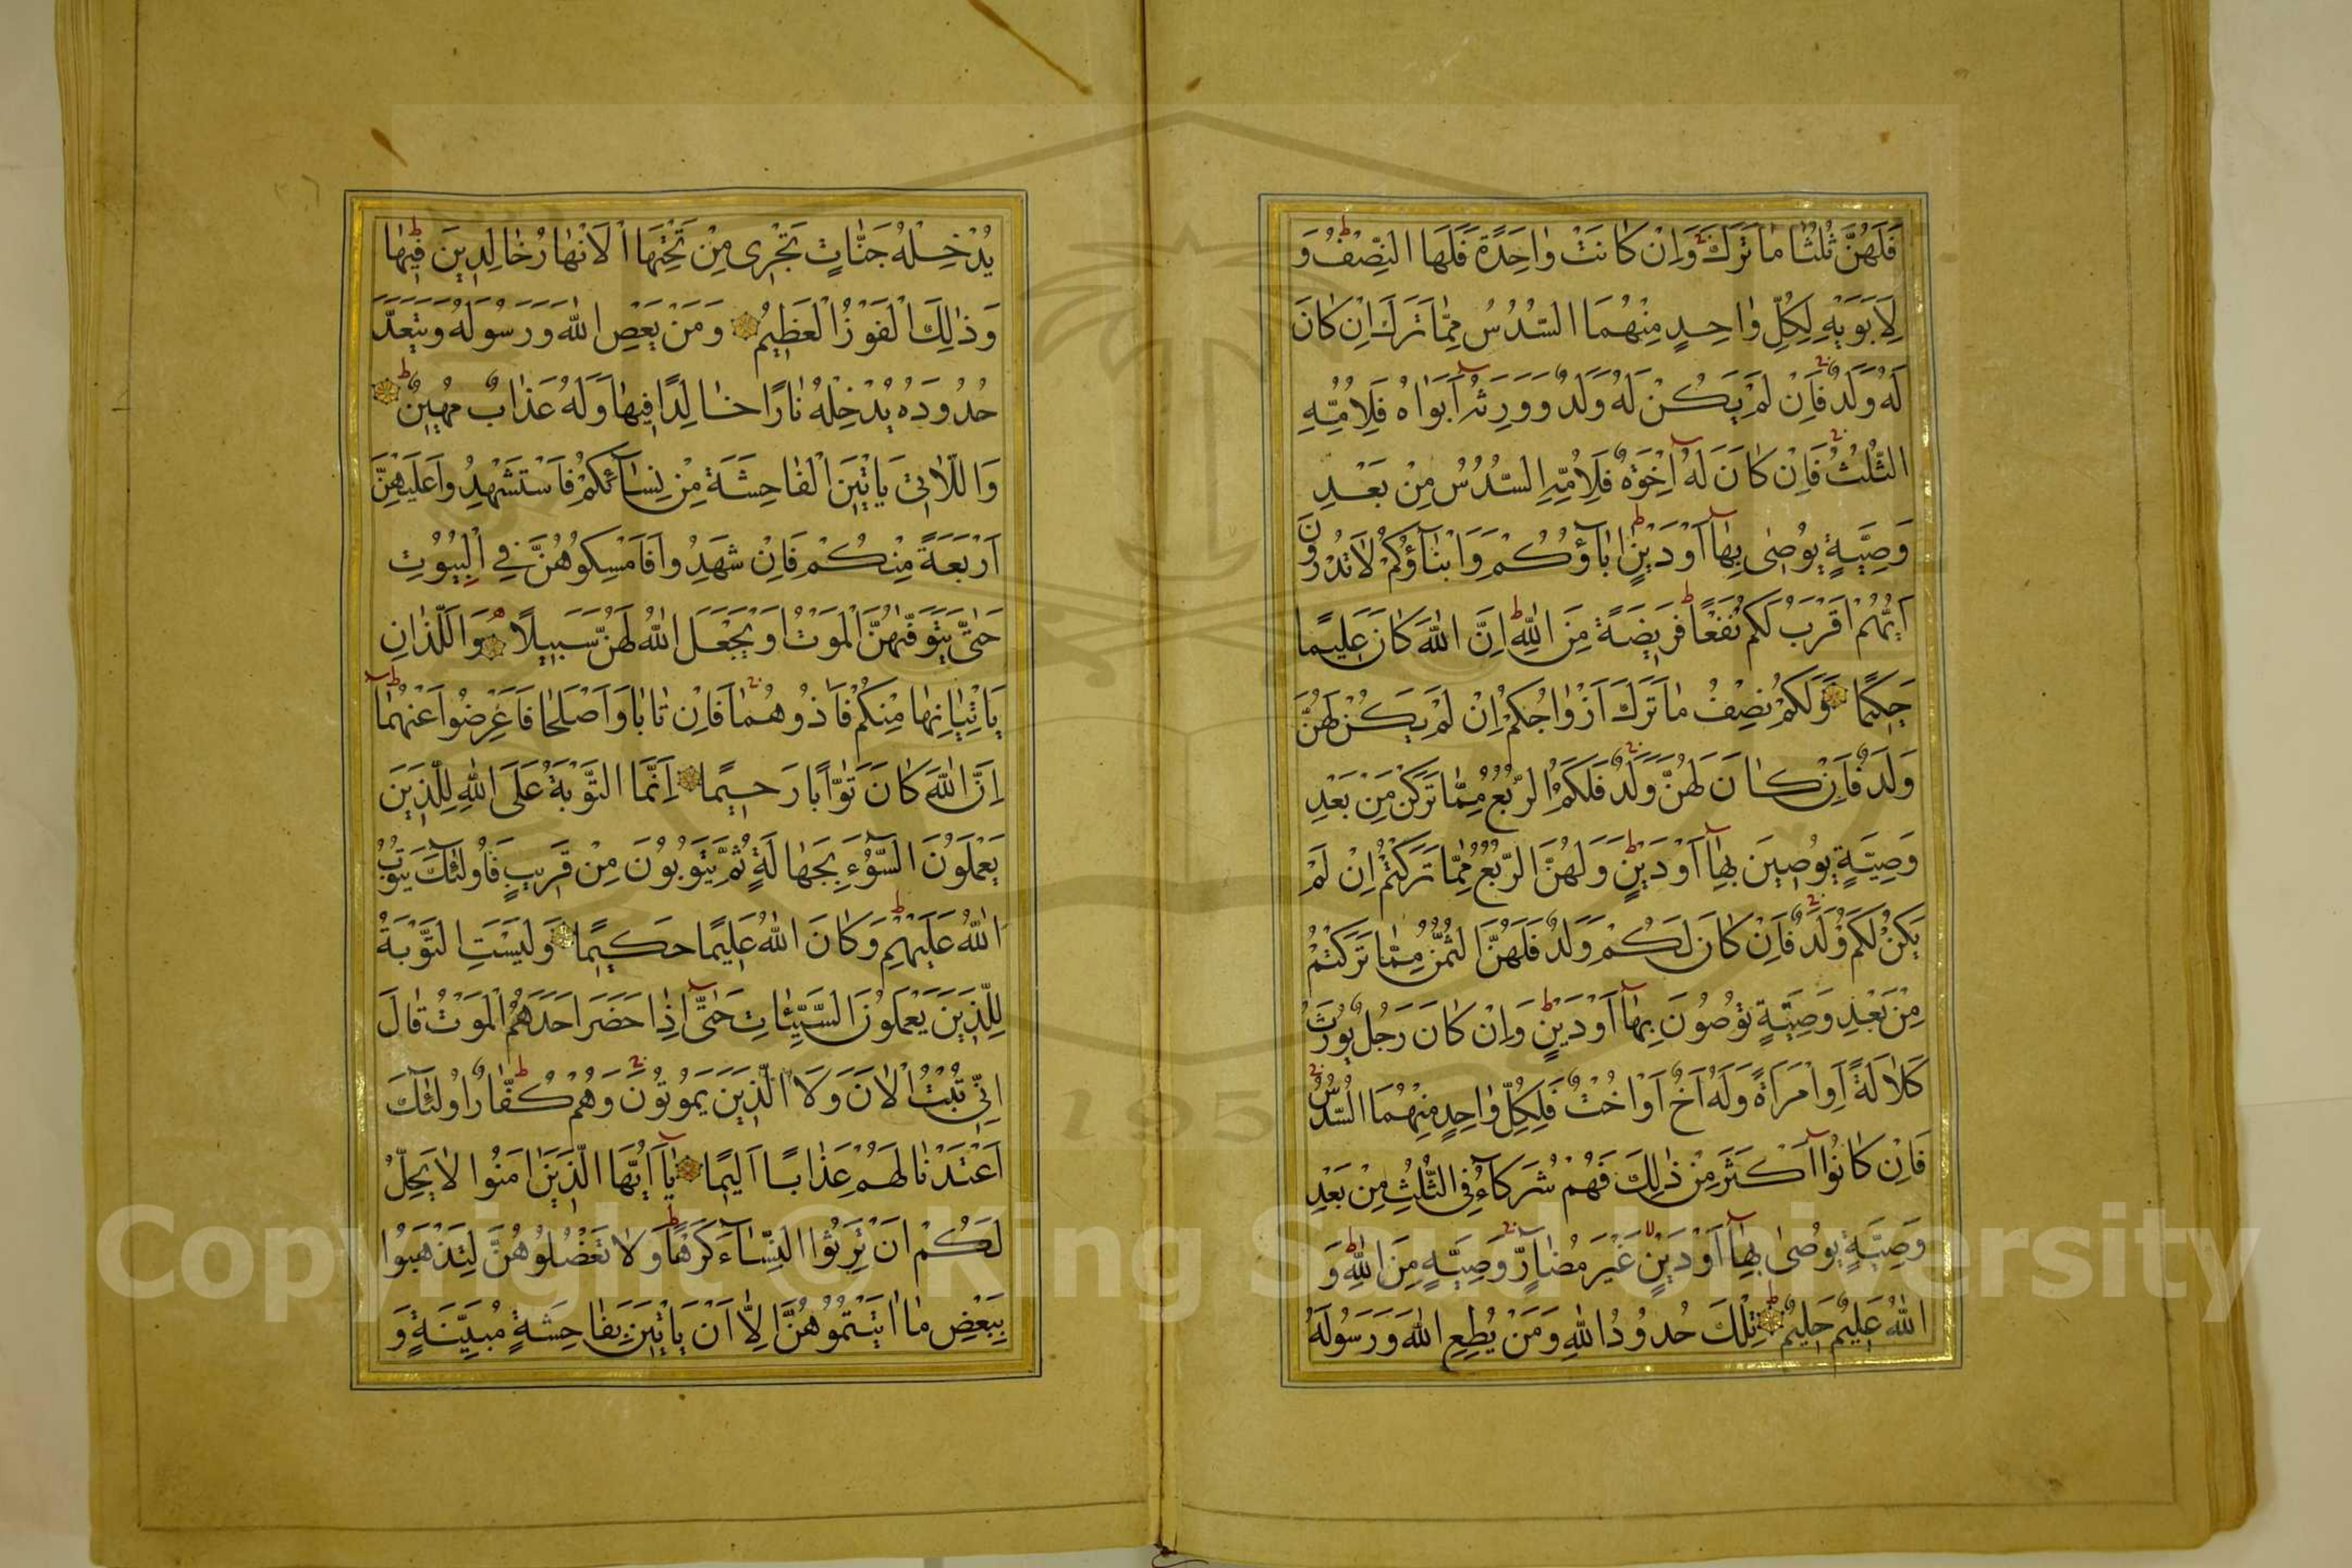 فَلَهُنَّ ثُلُثَا مَا تَرَكَ وَاِنْ كَانَتْ وَاحِدَةً فَلَهَا النِّصْفُ وَ
لِاَبَوَيْهِ لِكُلِّ وَاحِدٍ مِنْهُمَا السُّدُسُ مِمَّا تَرَكَ اِنْ كَانَ
لَهُ وَلَدٌ فَاِنْ لَمْ يَكُنْ لَهُ وَلَدٌ وَوَرِثَهُ اَبَوَاهُ فَلِاُمِّهِ
الثُّلُثُ فَاِنْ كَانَ لَهُ اِخْوَةٌ فَلِاُمِّهِ السُّدُسُ مِنْ بَعْدِ
وَصِيَّةٍ يُوصٰى بِهَا اَوْ دَيْنٍ اٰبَاؤُكُمْ وَاَبْنَاؤُكُمْ لَا تَدْرُونَ
اَيُّهُمْ اَقْرَبُ لَكُمْ نَفْعًا فَرِيضَةً مِنَ اللّٰهِ اِنَّ اللّٰهَ كَانَ عَلِيمًا
حَكِيمًا وَلَكُمْ نِصْفُ مَا تَرَكَ اَزْوَاجُكُمْ اِنْ لَمْ يَكُنْ لَهُنَّ
وَلَدٌ فَاِنْ كَانَ لَهُنَّ وَلَدٌ فَلَكُمُ الرُّبُعُ مِمَّا تَرَكْنَ مِنْ بَعْدِ
وَصِيَّةٍ يُوصِينَ بِهَا اَوْ دَيْنٍ وَلَهُنَّ الرُّبُعُ مِمَّا تَرَكْتُمْ اِنْ لَمْ
يَكُنْ لَكُمْ وَلَدٌ فَاِنْ كَانَ لَكُمْ وَلَدٌ فَلَهُنَّ الثُّمُنُ مِمَّا تَرَكْتُمْ
مِنْ بَعْدِ وَصِيَّةٍ تُوصُونَ بِهَا اَوْ دَيْنٍ وَاِنْ كَانَ رَجُلٌ يُورَثُ
كَلَالَةً اَوِ امْرَاَةٌ وَلَهُ اَخٌ اَوْ اُخْتٌ فَلِكُلِّ وَاحِدٍ مِنْهُمَا السُّدُسُ
فَاِنْ كَانُوا اَكْثَرَ مِنْ ذٰلِكَ فَهُمْ شُرَكَاءُ فِي الثُّلُثِ مِنْ بَعْدِ
وَصِيَّةٍ يُوصٰى بِهَا اَوْ دَيْنٍ غَيْرَ مُضَارٍّ وَصِيَّةً مِنَ اللّٰهِ وَ
اللّٰهُ عَلِيمٌ حَلِيمٌ تِلْكَ حُدُودُ اللّٰهِ وَمَنْ يُطِعِ اللّٰهَ وَرَسُولَهُ
يُدْخِلْهُ جَنَّاتٍ تَجْرِى مِنْ تَحْتِهَا الْاَنْهَارُ خَالِدِينَ فِيهَا
وَذٰلِكَ الْفَوْزُ الْعَظِيمُ وَمَنْ يَعْصِ اللّٰهَ وَرَسُولَهُ وَيَتَعَدَّ
حُدُودَهُ يُدْخِلْهُ نَارًا خَالِدًا فِيهَا وَلَهُ عَذَابٌ مُهِينٌ
وَاللَّاتِى يَاْتِينَ الْفَاحِشَةَ مِنْ نِسَائِكُمْ فَاسْتَشْهِدُوا عَلَيْهِنَّ
اَرْبَعَةً مِنْكُمْ فَاِنْ شَهِدُوا فَاَمْسِكُوهُنَّ فِي الْبُيُوتِ
حَتّٰى يَتَوَفّٰيهُنَّ الْمَوْتُ اَوْ يَجْعَلَ اللّٰهُ لَهُنَّ سَبِيلًا وَاللَّذَانِ
يَاْتِيَانِهَا مِنْكُمْ فَاٰذُوهُمَا فَاِنْ تَابَا وَاَصْلَحَا فَاَعْرِضُوا عَنْهُمَا
اِنَّ اللّٰهَ كَانَ تَوَّابًا رَحِيمًا اِنَّمَا التَّوْبَةُ عَلَى اللّٰهِ لِلَّذِينَ
يَعْمَلُونَ السُّوءَ بِجَهَالَةٍ ثُمَّ يَتُوبُونَ مِنْ قَرِيبٍ فَاُولٰئِكَ يَتُوبُ
اللّٰهُ عَلَيْهِمْ وَكَانَ اللّٰهُ عَلِيمًا حَكِيمًا وَلَيْسَتِ التَّوْبَةُ
لِلَّذِينَ يَعْمَلُونَ السَّيِّئَاتِ حَتّٰى اِذَا حَضَرَ اَحَدَهُمُ الْمَوْتُ قَالَ
اِنِّى تُبْتُ الْاٰنَ وَلَا الَّذِينَ يَمُوتُونَ وَهُمْ كُفَّارٌ اُولٰئِكَ
اَعْتَدْنَا لَهُمْ عَذَابًا اَلِيمًا يَا اَيُّهَا الَّذِينَ اٰمَنُوا لَا يَحِلُّ
لَكُمْ اَنْ تَرِثُوا النِّسَاءَ كَرْهًا وَلَا تَعْضُلُوهُنَّ لِتَذْهَبُوا
بِبَعْضِ مَا اٰتَيْتُمُوهُنَّ اِلَّا اَنْ يَاْتِينَ بِفَاحِشَةٍ مُبَيِّنَةٍ وَ
Copyright © King Saud University
195